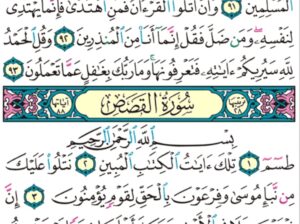 ٱلْمُسْلِمِينَ ٩١ وَأَنْ أَتْلُوَا۟ ٱلْقُرْءَانَ فَمَنِ ٱهْتَدَىٰ فَإِنَّمَا يَهْتَدِى
لِنَفْسِهِۦ وَمَن ضَلَّ فَقُلْ إِنَّمَآ أَنَا۠ مِنَ ٱلْمُنذِرِينَ ٩٢ وَقُلِ ٱلْحَمْدُ
لِلَّهِ سَيُرِيكُمْ ءَايَٰتِهِۦ فَتَعْرِفُونَهَا وَمَا رَبُّكَ بِغَٰفِلٍ عَمَّا تَعْمَلُونَ ٩٣
سُورَةُ القَصَصِ
بِسْمِ ٱللَّهِ ٱلرَّحْمَٰنِ ٱلرَّحِيمِ
طسٓمٓ ١ تِلْكَ ءَايَٰتُ ٱلْكِتَٰبِ ٱلْمُبِينِ ٢ نَتْلُوا۟ عَلَيْكَ
مِن نَّبَإِ مُوسَىٰ وَفِرْعَوْنَ بِٱلْحَقِّ لِقَوْمٍ يُؤْمِنُونَ ٣ إِنَّ